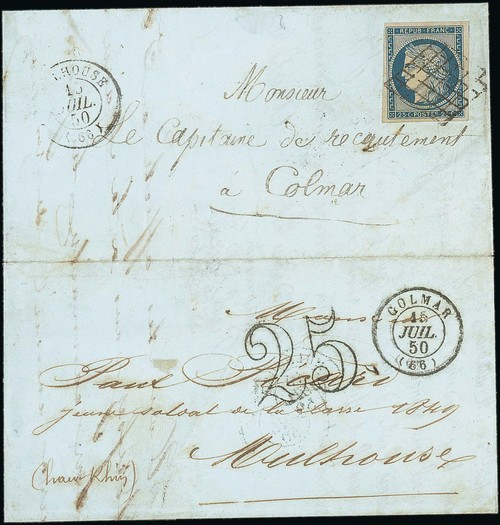 LHOUSE
15
JUIL.
50
(66)
REPUB. FRANC.
25 C. POSTES 25 C.
Monsieur
le Capitaine de recrutement
à Colmar
COLMAR
15
JUIL.
50
(66)
Monsieur
25
Paul
jeune soldat de la classe 1849
Mulhouse
(haut Rhin)